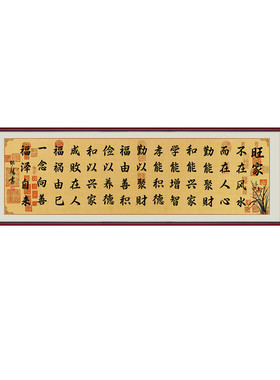 旺家
不在风水
而在人心
勤能聚财
学能增智
孝能积德
勤以聚财
福由善积
俭以养德
和以兴家
成败在人
福祸由己
一念向善
福泽自来